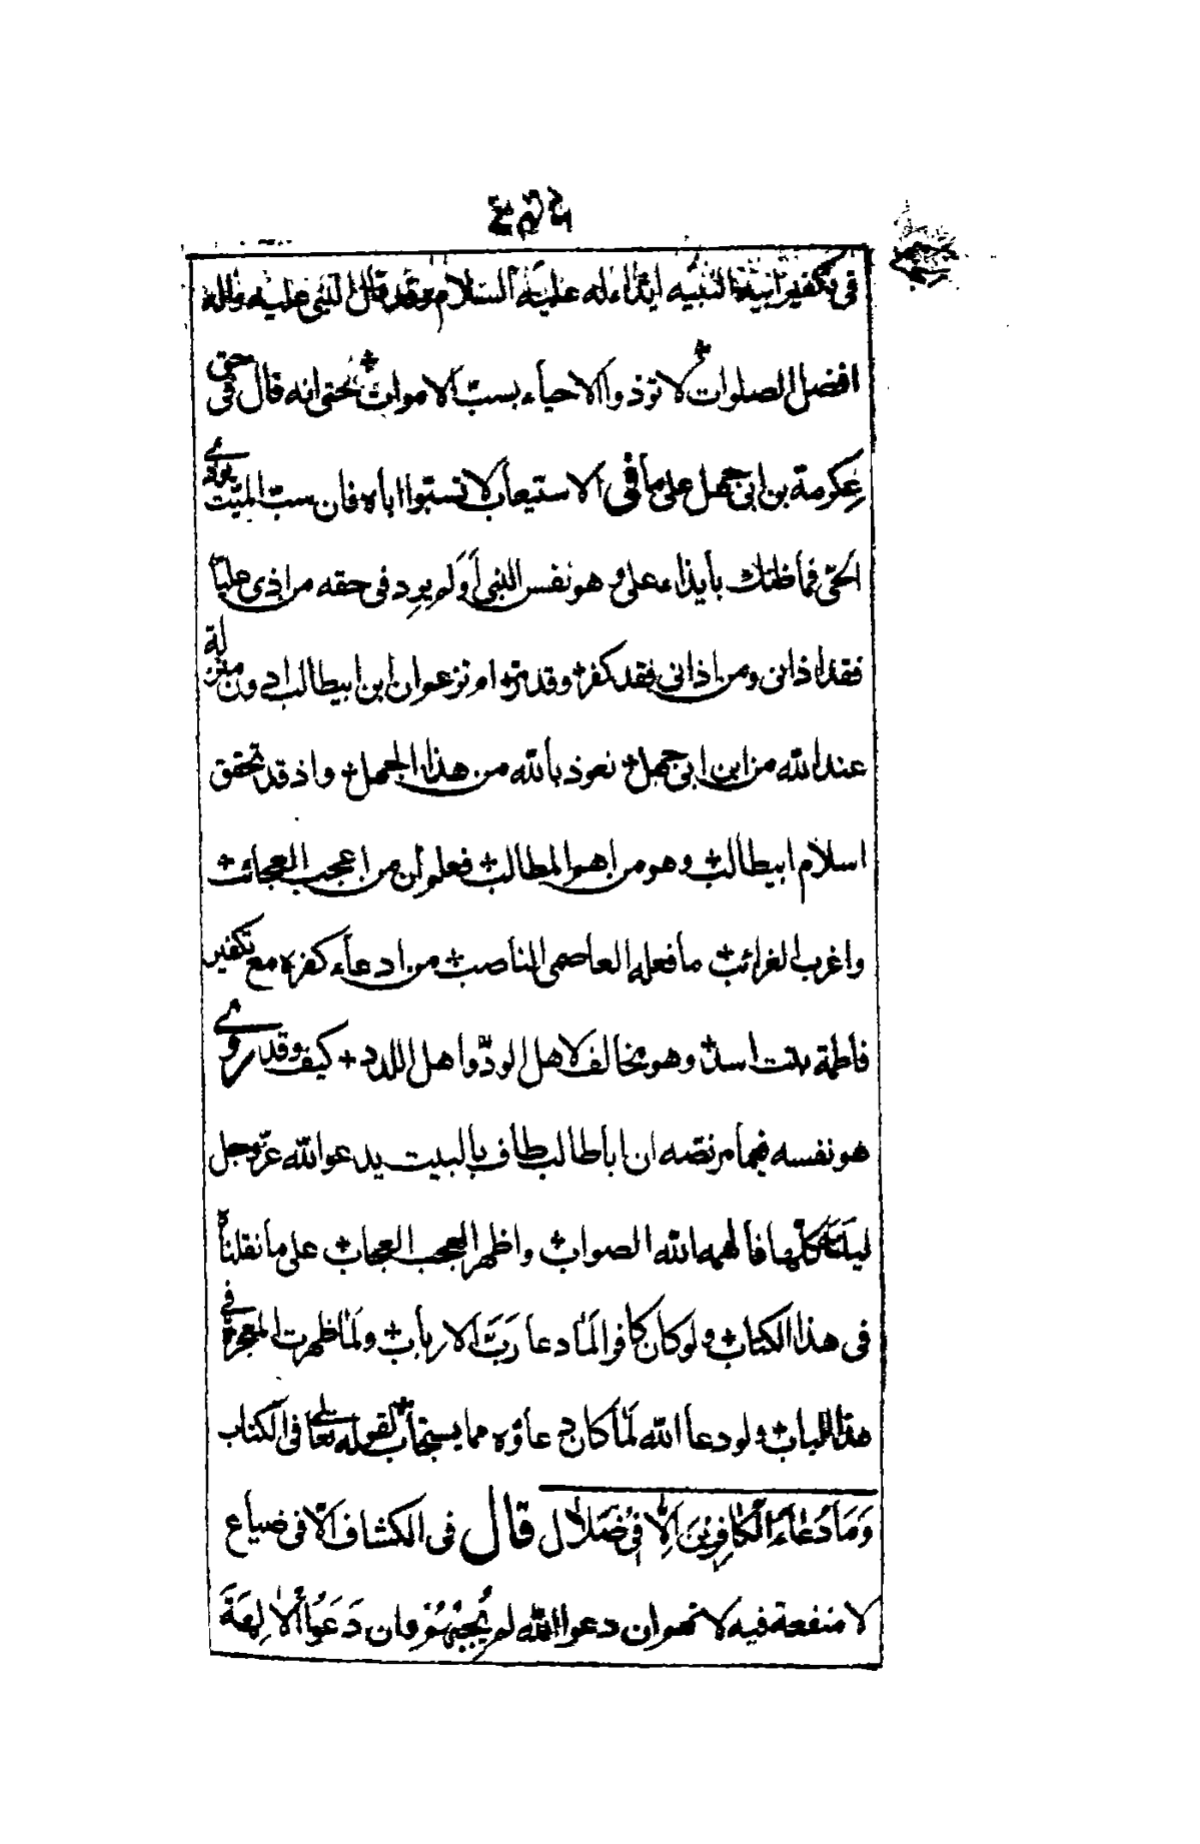 في تكفير ابيه النبيه ايذاء له عليه السلام وقد قال النبي عليه واله
افضل الصلوات لا توذوا الاحياء بسبّ الاموات حتى انه قال في حق
عكرمة بن ابي جهل على ما في الاستيعاب لا تسبّوا اباه فان سبّ الميّت يوذي
الحيّ فما ظنك بايذاء علي وهو نفس النبي اَوَلم يرد في حقه من اذى عليّا
فقد اذاني ومن اذاني فقد كفر وقد ترى ام تزعم ان ابن ابيطالب ادون منزلة
عند الله من ابن ابي جهل نعوذ بالله من هذا الجهل واذ قد تحقق
اسلام ابيطالب وهو من اهم المطالب فعلم ان من اعجب العجائب
واغرب الغرائب ما فعله العاصمي الناصب من ادعاء كفره مع تكفير
فاطمة بنت اسد وهو مخالف لاهل الودّ واهل اللدد كيف وقد روى
هو نفسه فيما مر نصّه ان اباطالب طاف بالبيت يدعو الله عزّ وجل
ليلته كلّها فالهمه الله الصواب واظهر العجب العجاب على ما نقلناه
في هذا الكتاب ولو كان كافرا لَما دعا رَبَّ الارباب ولَما ظهرت المعجزة في
هذا الباب ولو دعا الله لَما كان دعاؤه مما يستجاب لقوله تعالى في الكتاب
وَمَا دُعَاءُ الْكَافِرِيْنَ اِلَّا فِيْ ضَلَالٍ قال في الكشاف الّا في ضياع
لا منفعة فيه لانهم ان دعوا الله لم يُجِبْهُمْ وان دَعَوُا الْاٰلِهَةَ